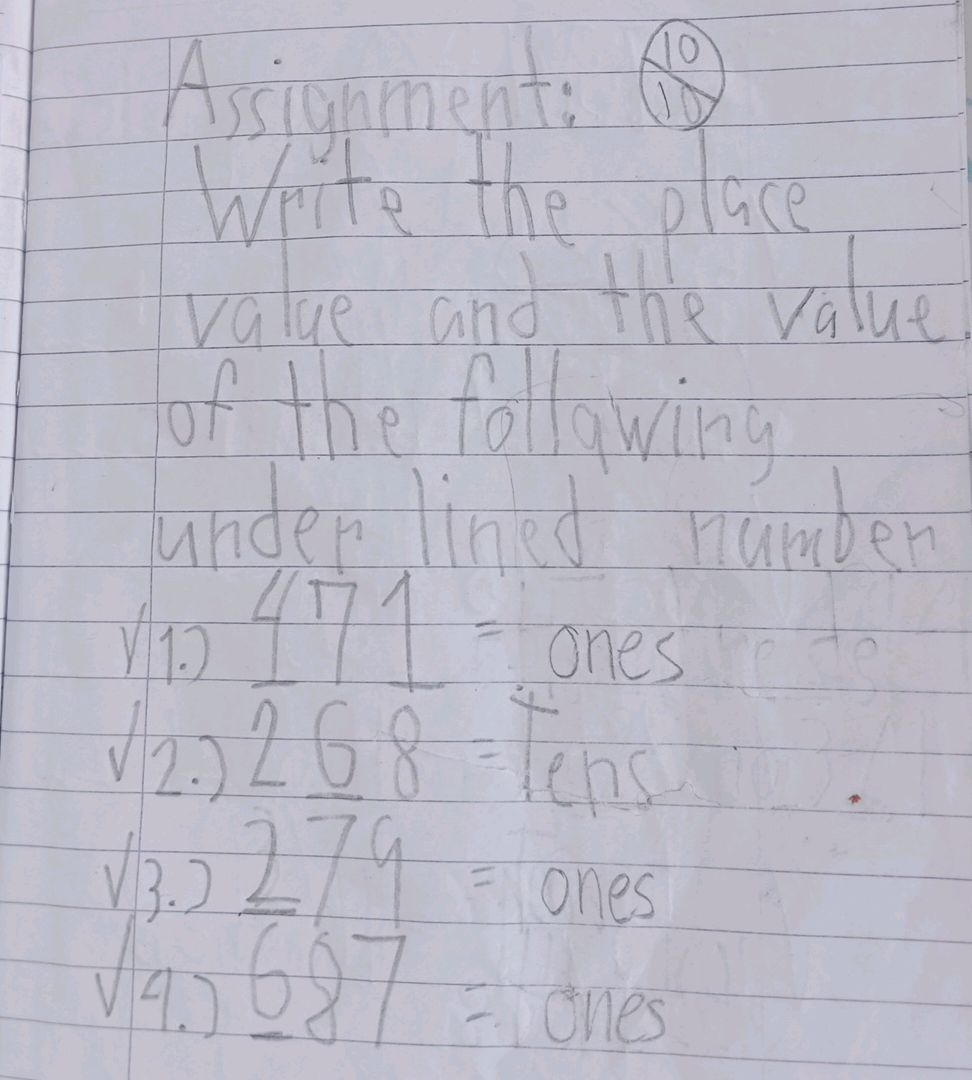 Assignment: 10/10
Write the place
value and the value
of the following
under lined number
√1.) 471 = ones
√2.) 268 = Tens
√3.) 279 = ones
√4.) 687 = ones